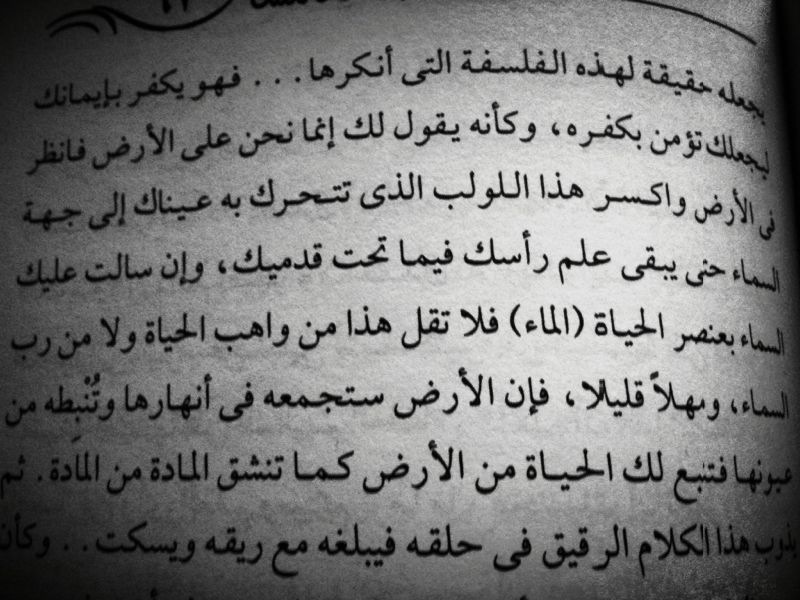 يجعله حقيقة لهذه الفلسفة التى أنكرها . . . فهو يكفر بإيمانك
ليجعلك تؤمن بكفره ، وكأنه يقول لك إنما نحن على الأرض فانظر
فى الأرض واكسر هذا اللولب الذى تتحرك به عيناك إلى جهة
السماء حتى يبقى علم رأسك فيما تحت قدميك ، وإن سالت عليك
السماء بعنصر الحياة (الماء) فلا تقل هذا من واهب الحياة ولا من رب
السماء، ومهلاً قليلا ، فإن الأرض ستجمعه فى أنهارها وتُنْبِطه من
عيونها فتنبع لك الحياة من الأرض كما تنشق المادة من المادة . ثم
يذوب هذا الكلام الرقيق فى حلقه فيبلغه مع ريقه ويسكت . . وكأن